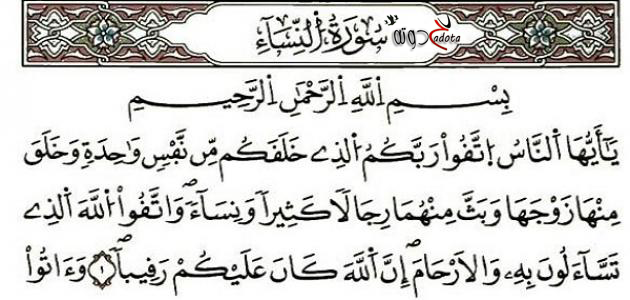 سُورَةُ اُلنِّسَآءِ
حدوته
7adota
بِسْمِ اِللَّهِ اِلرَّحْمَٰنِ اِلرَّحِيمِ
يَٰٓأَيُّهَا اَلنَّاسُ اُ۪تَّقُواْ رَبَّكُمُ اُلذِے خَلَقَكُم مِّن نَّفْسٖ وَٰحِدَةٖ وَخَلَقَ
مِنْهَا زَوْجَهَا وَبَثَّ مِنْهُمَا رِجَالاٗ كَثِيراٗ وَنِسَآءٗۖ وَاتَّقُواْ اُللَّهَ اَلذِے
تَسَّآءَلُونَ بِهِۦ وَالَارْحَامَۖ إِنَّ اَللَّهَ كَانَ عَلَيْكُمْ رَقِيباٗۖ ١ وَءَاتُواْ